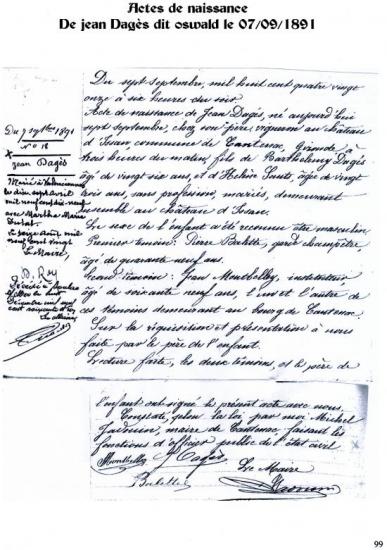 Actes de naissance
De jean Dagès dit oswald le 07/09/1891
Du 7 7bre 1891
N° 18
jean Dagès
Marié à
le dix sept avril
mil neuf cent
avec Marthe Marie
Le seize août mil
neuf cent vingt
Le Maire,
Décédé à
le huit
Décembre mil neuf
cent soixante
Du sept septembre, mil huit cent quatre vingt
onze à six heures du soir
Acte de naissance de Jean Dagès, né aujourd'hui
sept septembre, chez son père, vigneron au château
d'Issan commune de Cantenac, Gironde à
trois heures du matin, fils de Barthélemy Dagès
âgé de vingt six ans, et d'Hélène âgée de vingt
trois ans, sans profession, mariés, demeurant
ensemble au château d'Issan.
Le sexe de l'enfant a été reconnu être masculin.
Premier témoin: Pierre garde champêtre,
âgé de quarante neuf ans.
Second témoin: Jean instituteur,
âgé de soixante neuf ans, l'un et l'autre de
ces témoins demeurant au bourg de Cantenac.
Sur la réquisition et présentation à nous
faite par le père de l'enfant.
Lecture faite, les deux témoins, et le père de
l'enfant ont signé le présent acte avec nous.
Constaté, selon la loi, par moi Michel
maire de Cantenac, faisant les
fonctions d'officier public de l'état civil
Dagès
Le Maire
99